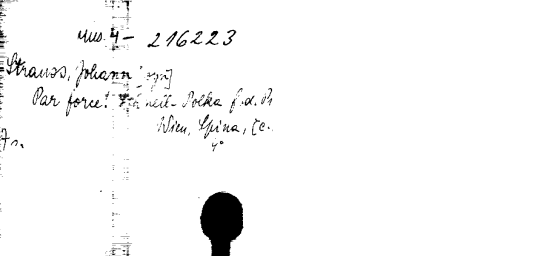 Mus. 4 - 216223
Strauss, Johann
Par force! Schnell-Polka f. d. P
Wien, Spina, [c.
4°
7 S.